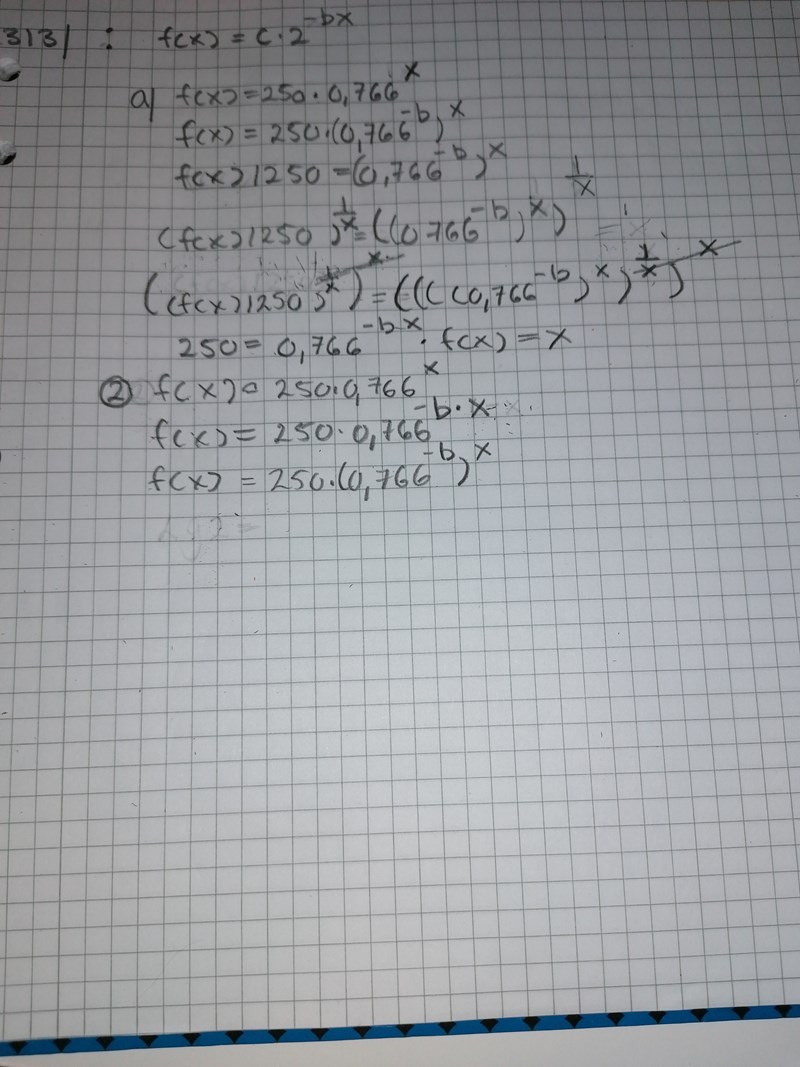 313) : f(x) = c · 2^-bx
a) f(x) = 250 · 0,766^x
f(x) = 250 · (0,766^-b)^x
f(x) / 250 = (0,766^-b)^x
(f(x) / 250)^1/x = ((0 766^-b)^x)^1/x
((f(x) / 250)^1/x)^x = ((((0,766^-b)^x)^1/x)^x
250 = 0,766^-bx · f(x) = x
② f(x) = 250 · 0,766^x
f(x) = 250 · 0,766^-b·x
f(x) = 250 · (0,766^-b)^x